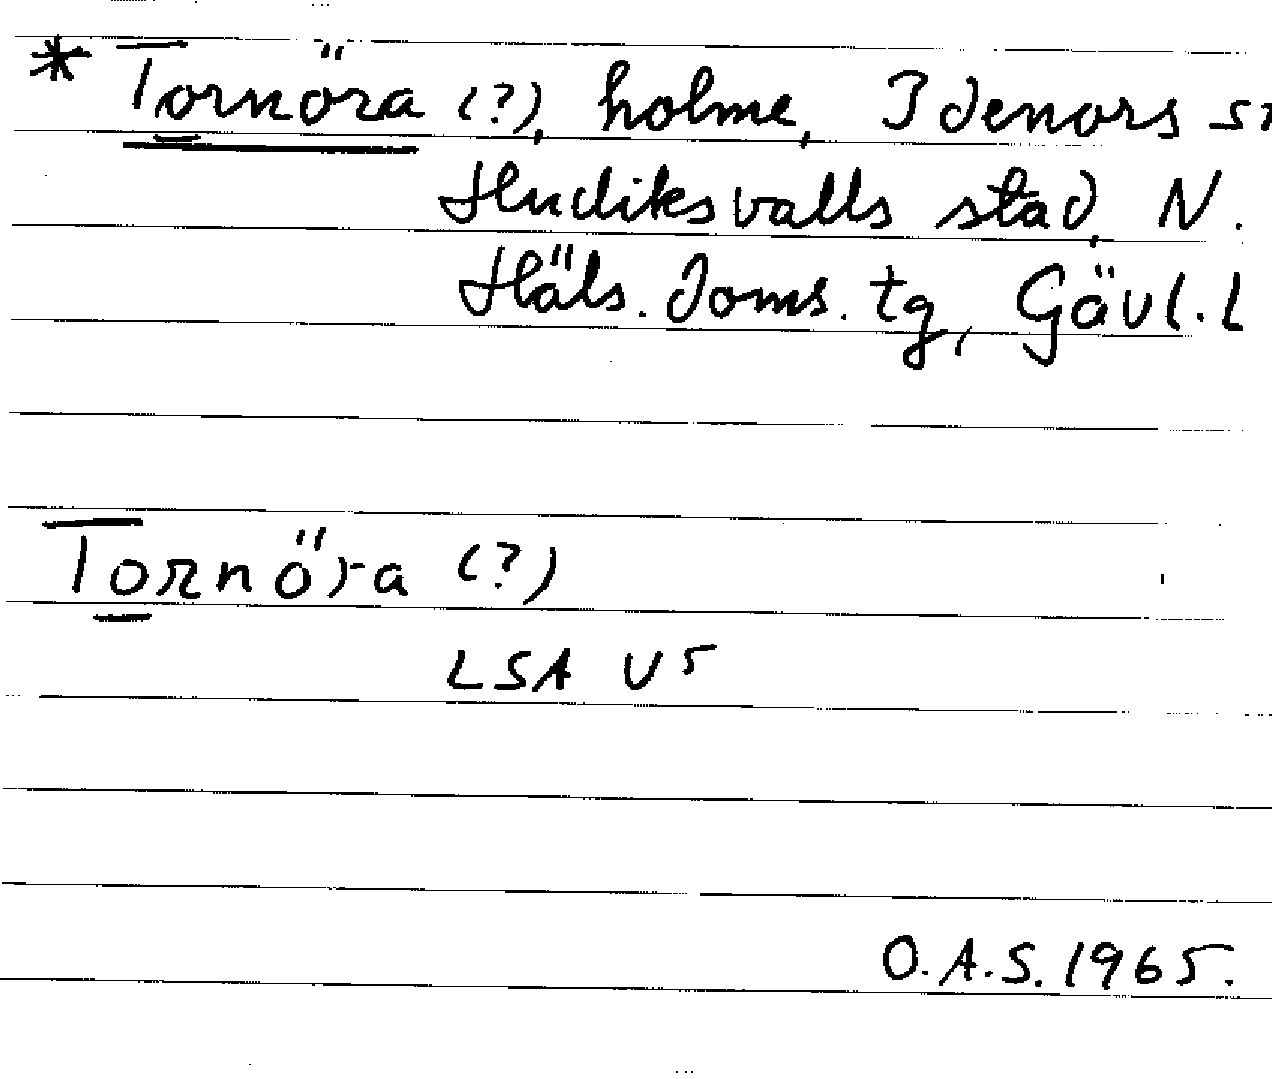 * Tornöra (?), holme, Idenors sn
Hudiksvalls stad, N.
Häls. doms. tg, Gävl. l
Tornöra (?)
LSA U5
O.A.S. 1965.